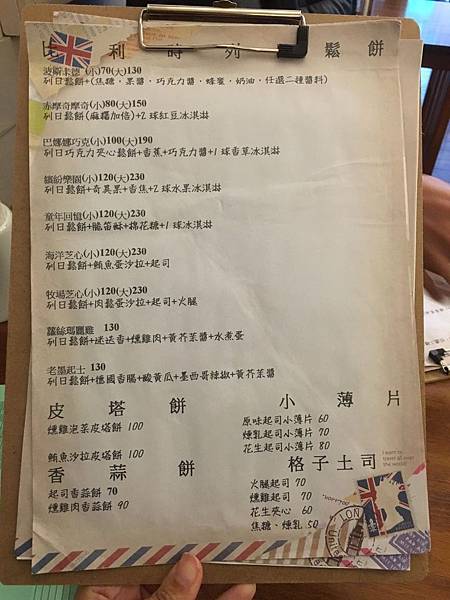 比利時列日鬆餅
波斯卡德(小)70(大)130
列日鬆餅+(焦糖,果醬,巧克力醬,蜂蜜,奶油,任選二種醬料)
赤摩奇摩奇(小)80(大)150
列日鬆餅(麻糬加倍)+2球紅豆冰淇淋
巴娜娜巧克(小)100(大)190
列日巧克力夾心鬆餅+香蕉+巧克力醬+1球香草冰淇淋
繽紛樂園(小)120(大)230
列日鬆餅+奇異果+香蕉+2球水果冰淇淋
童年回憶(小)120(大)230
列日鬆餅+脆笛酥+棉花糖+1球冰淇淋
海洋芝心(小)120(大)230
列日鬆餅+鮪魚蛋沙拉+起司
牧場芝心(小)120(大)230
列日鬆餅+肉鬆蛋沙拉+起司+火腿
蘿絲瑪麗雞 130
列日鬆餅+迷迭香+燻雞肉+黃芥茉醬+水煮蛋
老墨起士 130
列日鬆餅+德國香腸+酸黃瓜+墨西哥辣椒+黃芥茉醬
皮塔餅
燻雞泡菜皮塔餅 100
鮪魚沙拉皮塔餅 100
香蒜餅
起司香蒜餅 70
燻雞肉香蒜餅 90
小薄片
原味起司小薄片 60
煉乳起司小薄片 70
花生起司小薄片 80
格子土司
火腿起司 70
燻雞起司 70
花生夾心 60
焦糖、煉乳 50
I want to
travel all over
the world!
LON